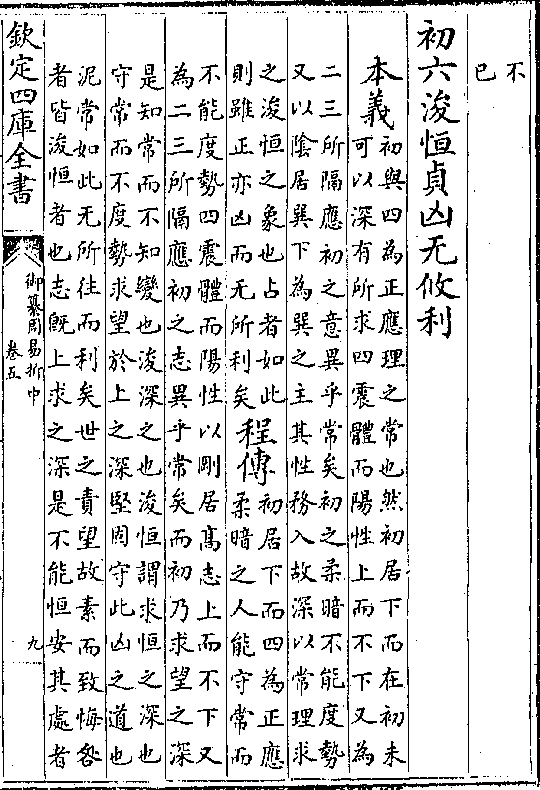 不
已
初六浚恒貞凶无攸利
本義初與四為正應理之常也然初居下而在初未
可以深有所求四震體而陽性上而不下又為
二三所隔應初之意異乎常矣初之柔暗不能度勢
又以陰居巽下為巽之主其性務入故深以常理求
之浚恒之象也占者如此
則雖正亦凶而无所利矣
程傳初居下而四為正應
柔暗之人能守常而
不能度勢四震體而陽性以剛居髙志上而不下又
為二三所隔應初之志異乎常矣而初乃求望之深
是知常而不知變也浚深之也浚恒謂求恒之深也
守常而不度勢求望於上之深堅固守此凶之道也
泥常如此无所往而利矣世之責望故素而致悔咎
者皆浚恒者也志旣上求之深是不能恒安其處者
欽定四庫全書
御纂周易折中
卷五
九